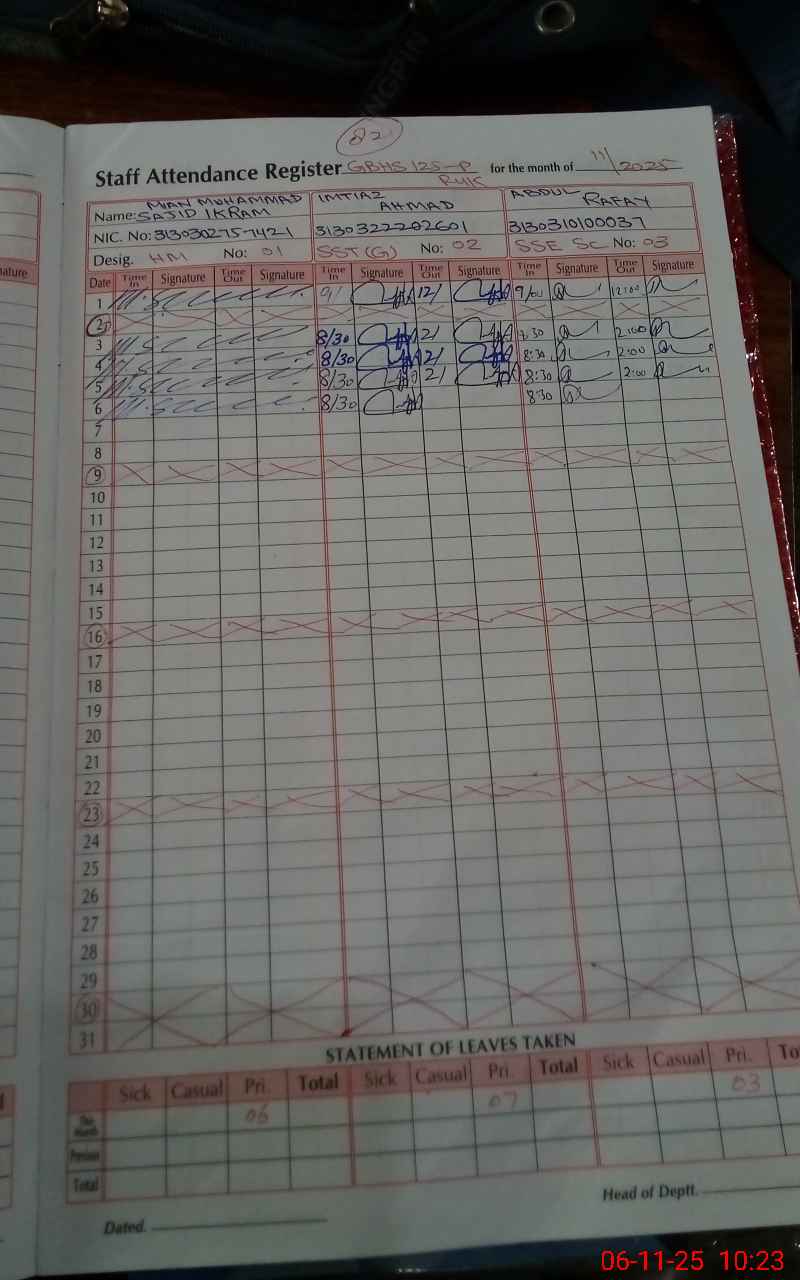 82
Staff Attendance Register GBHS 125-P RYK for the month of 11/2025
Name: MIAN MUHAMMAD SAJID IKRAM IMTIAZ AHMAD ABDUL RAFAY
NIC. No: 3130322202601 3130310100037
Desig. HM No: 01 SST(G) No: 02 SSE SC No: 03
Date Time In Signature Time Out Signature Time In Signature Time Out Signature Time In Signature Time Out Signature
1 9/ 12/ 9/00 12:00
2
3 8/30 2/ 2:00
4 8/30 2/ 8:30 2:00
5 8/30 2/ 8:30 2:00
6 8/30 8:30
7
8
9
10
11
12
13
14
15
16
17
18
19
20
21
22
23
24
25
26
27
28
29
30
31
STATEMENT OF LEAVES TAKEN
Sick Casual Pri. Total Sick Casual Pri. Total Sick Casual Pri. To
This Month 06 07 03
Previous
Total
Dated. Head of Deptt.
06-11-25 10:23